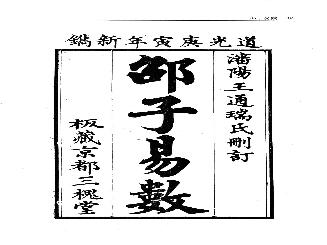 道光庚寅年新鐫
瀋陽王通瑞氏刪訂
邵子易數
板藏京都三槐堂